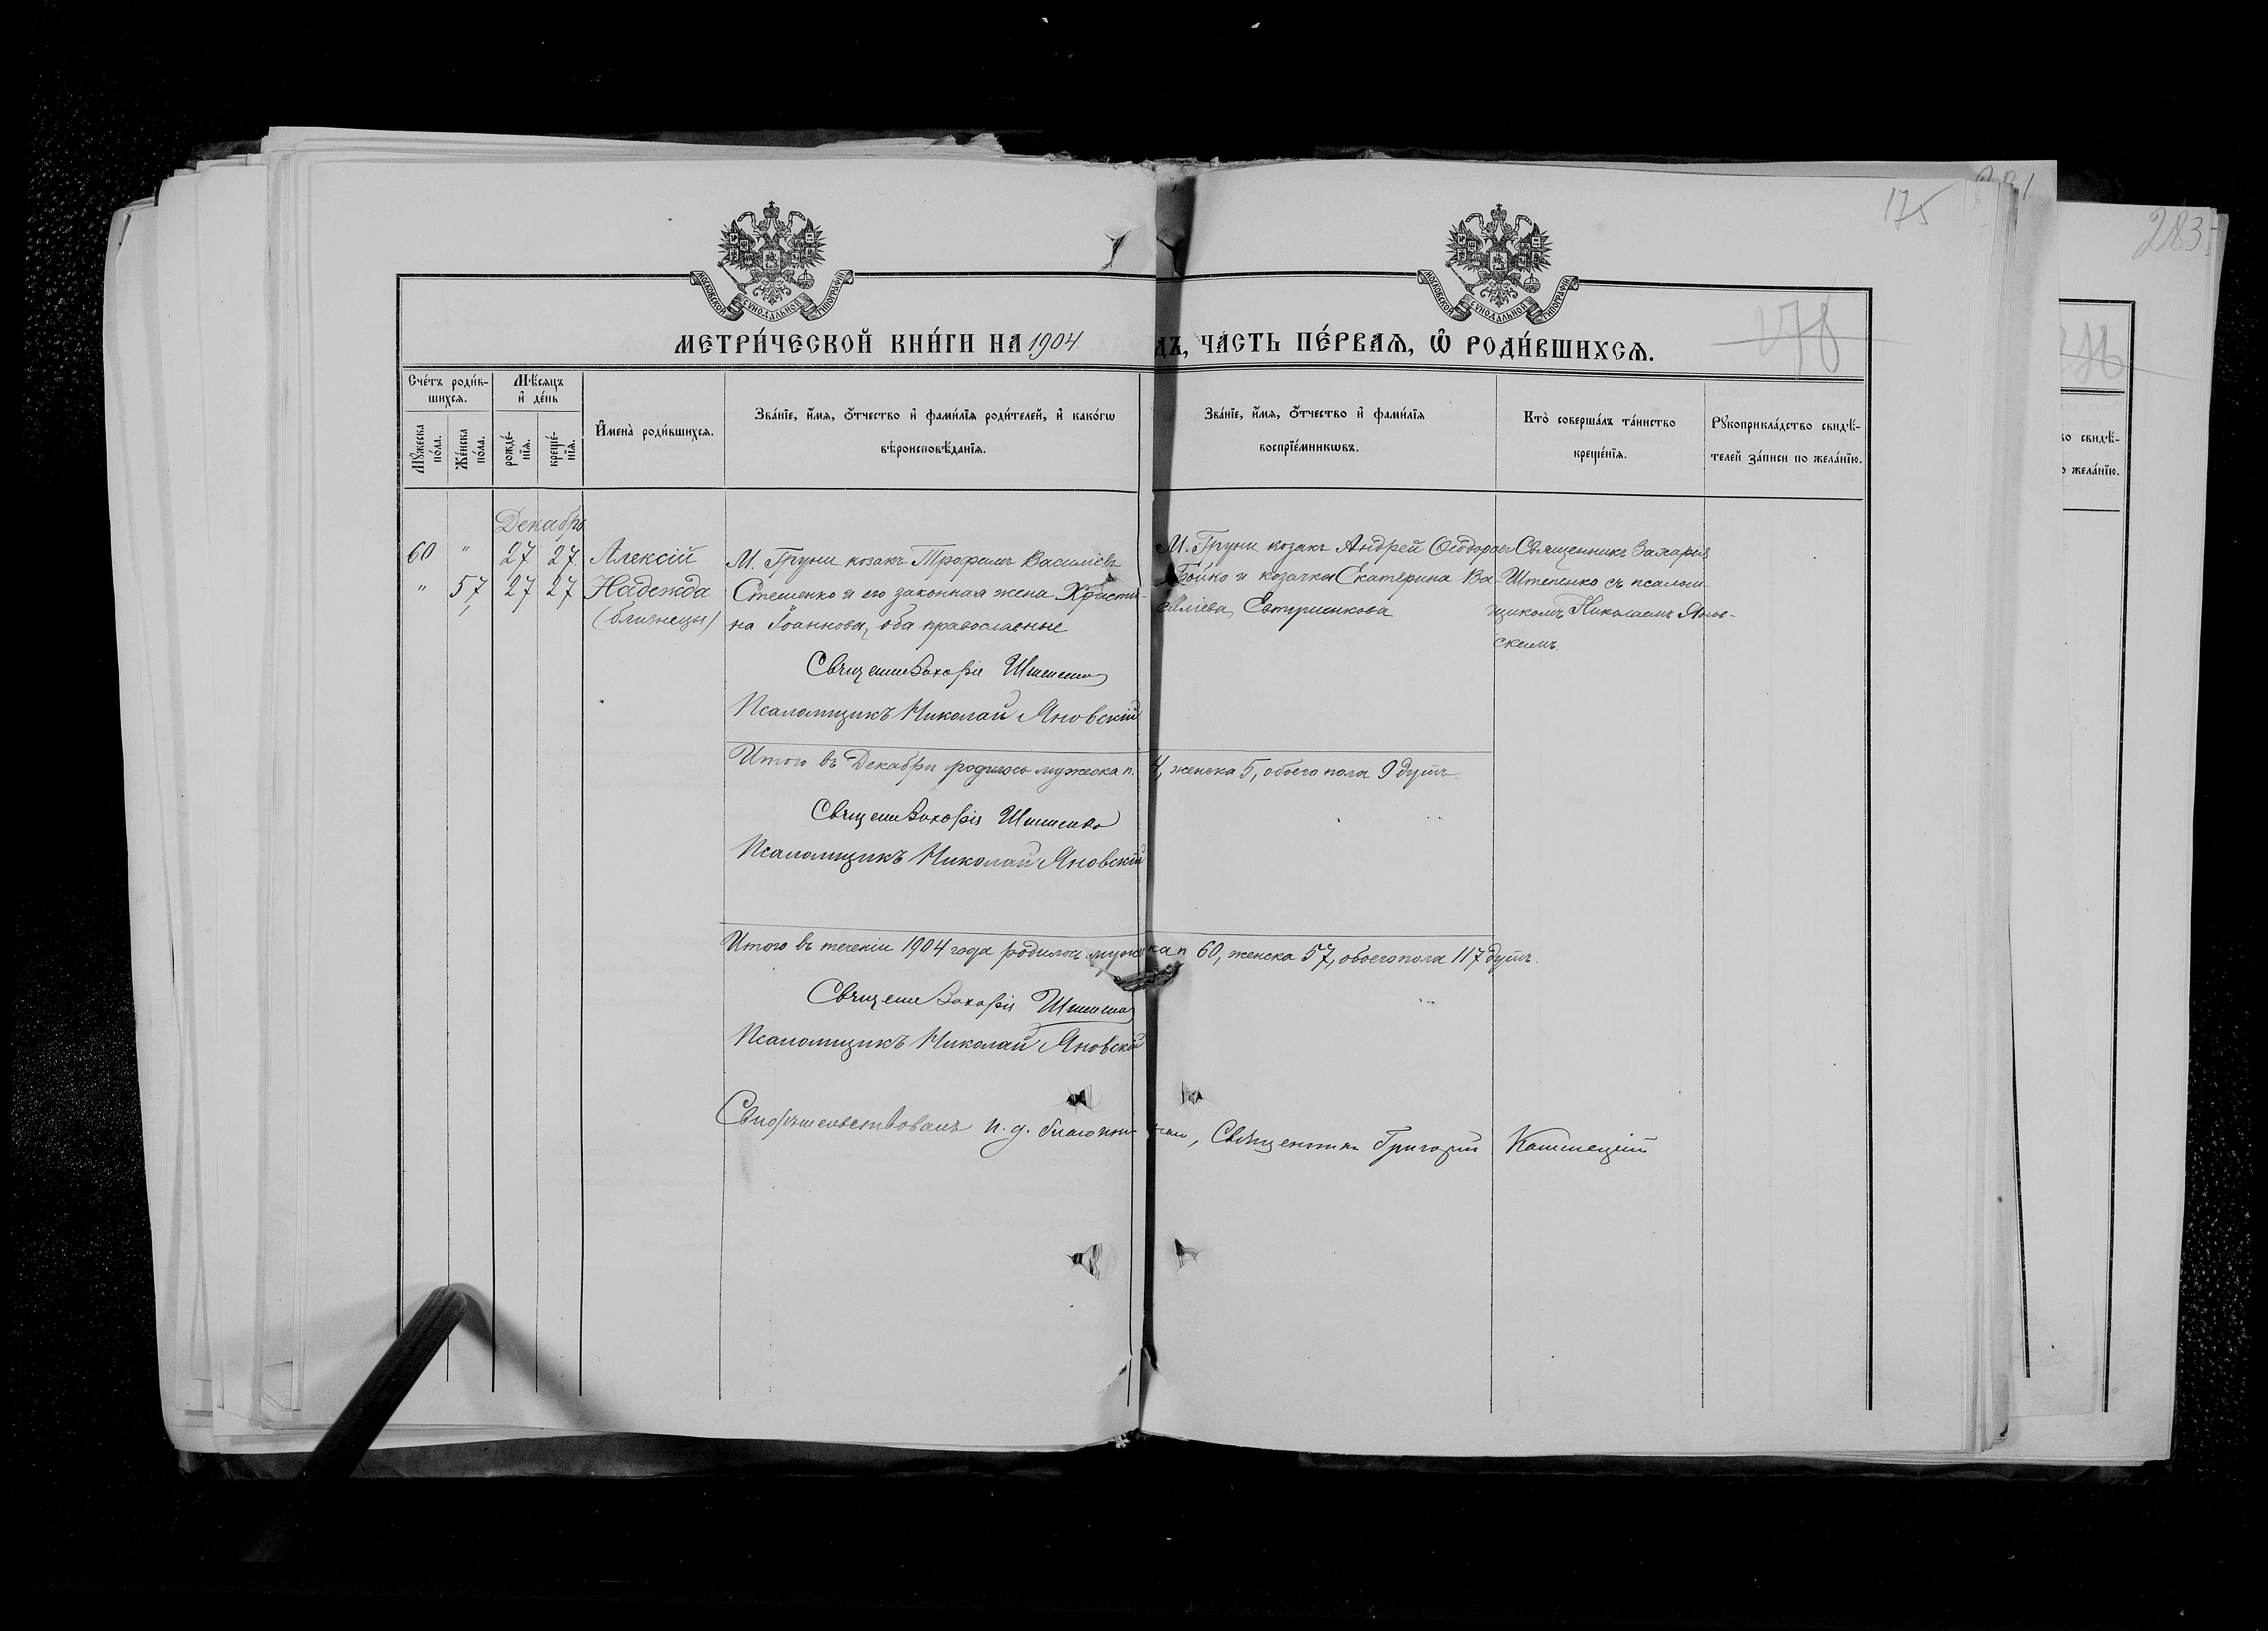 175
283
МОСКОВСКОЙ СУНОДАЛЬНОЙ ТИПОГРАФІИ
МОСКОВСКОЙ СУНОДАЛЬНОЙ ТИПОГРАФІИ
178
МЕТРИ́ЧЕСКОЙ КНИ́ГИ НА 1904 ДЪ, ЧА́СТЬ ПЕ́РВАѦ, Ѡ҆ РОДИ́ВШИХСѦ.
Сче́тъ роди́в-
шихсѧ.
Мꙋ́жеска по́ла.
Же́нска по́ла.
Мѣ́сѧцъ
и҆ де́нь
рожде́-
нїѧ.
креще́-
нїѧ.
И҆мена̀ роди́вшихсѧ.
Зва́нїе, и҆́мѧ, ѻ҆́тчество и҆ фами́лїѧ роди́телей, и҆ како́гѡ
вѣроисповѣ́данїѧ.
Зва́нїе, и҆́мѧ, ѻ҆́тчество и҆ фами́лїѧ
воспрїе́мникѡвъ.
Кто̀ соверша́лъ та́инство
креще́нїѧ.
Рꙋкоприкла́дство свидѣ́-
телей за́писи по жела́нїю.
Декабрь
60 " 27 27 Алексій
" 57 27 27 Надежда
(близнецы)
М. Груни козакъ Трофимъ Василіевъ
Стешенко и его законная жена Христи-
на Іоаннова, оба православные
М. Груни козакъ Андрей Ѳеодоровъ
Бойко и козачка Екатерина Ва-
силіева Евтушенкова
Священникъ Захарія
Штепенко съ псалом-
щикомъ Николаемъ Янов-
скимъ.
Священ Захарія Штепенко
Псаломщикъ Николай Яновскій
Итого въ Декабрѣ родилось мужеска п. 4, женска 5, обоего пола 9 душъ.
Священ Захарія Штепенко
Псаломщикъ Николай Яновскій
Итого въ теченіи 1904 года родилось мужска п 60, женска 57, обоего пола 117 душъ.
Священ Захарія Штепенко
Псаломщикъ Николай Яновскій
Свидѣтельствовалъ и. д. благочиннаго, Священникъ Григорій
со свидѣ-
жела́нїю.